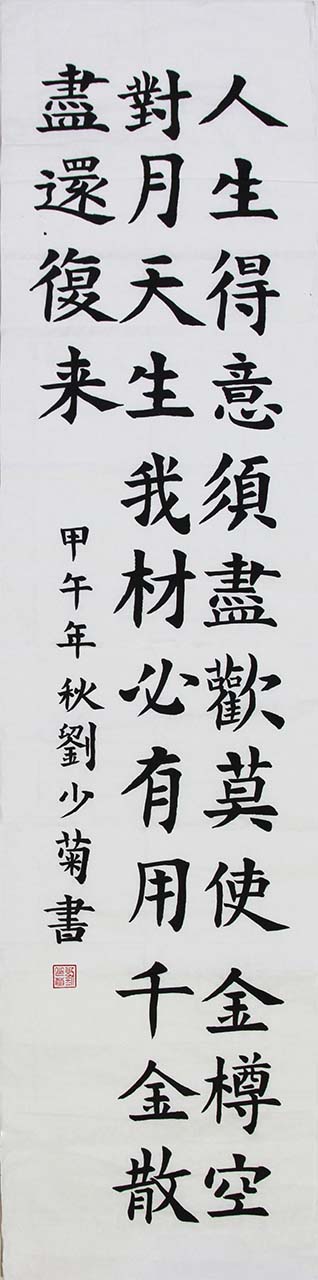 人生得意須盡歡莫使金樽空
對月天生我材必有用千金散
盡還復来
甲午年秋劉少菊書